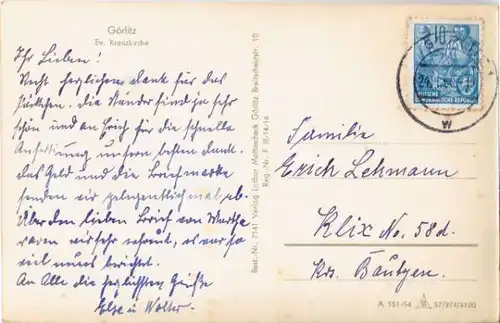 Görlitz
Ev. Kreuzkirche
Ihr Lieben!
Recht herzlichen Dank für das
Päckchen. Die Ränder sind ja sehr
schön und an Erich für die schnelle
Anfertigung unsren besten Dank.
Das Geld und die Briefmarke
senden wir gelegentlich mal ab.
Über den lieben Brief von Martha
waren wir sehr erfreut, es war so
viel neues berichtet.
An Alle die herzlichsten Grüße
Else u. Walter
Best.-Nr. 7141 Verlag Lothar Mattescheck Görlitz, Breitscheidstr. 10
Reg.-Nr. F III/14/16
10
DEUTSCHE
DEMOKRATISCHE REPUBLIK
W
Familie
Erich Lehmann
Klix No. 58d.
Krs. Bautzen.
A 551/54 57/974/4100